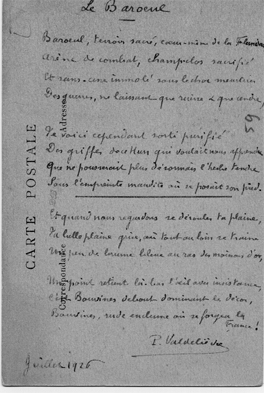 Le Baroeul
Baroeul, terroir sacré, coeur même de la Flandre
Arène de combat, champ clos sacrifié
Et sans cesse immolé sous le choc
Des guerres, ne laissant que ruine et que cendre,
Te voici cependant sorti purifié
Des griffes des Huns qui
Que ne pousserait plus désormais l'herbe tendre
Sous l'empreinte maudite où se posait son pied.
Et quand nous regardons se dérouler ta plaine,
Ta belle plaine grise, où tout au loin se traîne
Un peu de brume bleue au ras des moissons d'or,
Un point retient là-bas l'oeil avec insistance,
C'est Bouvines debout dominant le décor,
Bouvines, rude enclume où se forgea la
France !
P. Valdelièvre
Juillet 1926
CARTE POSTALE
Correspondance
Adresse
59